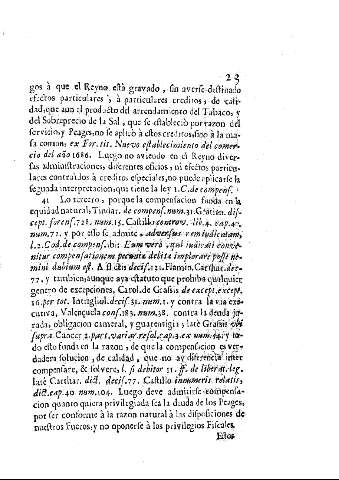 23
gos à que el Reyno està gravado, sin averse destinado
efectos particulares, à particulares creditos, de cali-
dad, que aun el producto del arrendamiento del Tabaco, y
del Sobreprecio de la Sal, que se estableciò por razon del
servicio, y Peages, no se aplicò à estos creditos, sino à la ma-
sa comun: ex For. tit. Nuevo establecimiento del comer-
cio del año 1686. Luego no aviendo en el Reyno diver-
sas administraciones, diferentes oficios, ni efectos particu-
lares contraidos à creditos especiales, no puede aplicarse la
segunda interpretacion, que tiene la ley 1. C. de compens.
41 Lo tercero, porque la compensacion funda en la
equidad natural, Tindar. de compens. num. 31. Gratian. dis-
cept. forens. 728. num. 15. Castillo controv. lib. 4. cap. 42.
num. 71. y por esto se admite, adversus rem iudicatam,
l. 2. Cod. de compens. ibi: Eum verò, qui iudicati conve-
nitur compensationem pecuniæ debitæ implorare posse ne-
mini dubium est. Aflictis decis. 121. Flamin. Carthar. dec.
77. y tambien, aunque aya estatuto que prohiba qualquier
genero de excepciones, Carol. de Grassis de except. except.
26. per tot. Intrigliol. decis. 31. num. 1. y contra la via exe-
cutiva, Valençuela cons. 183. num. 38. contra la deuda ju-
rada, obligacion cameral, y guarentigia, latè Grassis ubi
supra Cancer 2. part. variar. resol. cap. 3. ex num. 54. y to-
do esto funda en la razon, de que la compensacion es ver-
dadera solucion, de calidad, que no ay diferencia inter
compensare, & solvere, l. si debitor 51. ff. de liberat. leg.
latè Carthar. dict. decis. 77. Castillo innumeris relatis,
dict. cap. 40. num. 104. Luego deve admitirse compensa-
cion quanto quiera privilegiada sea la deuda de los Peages,
por ser conforme à la razon natural à las disposiciones de
nuestros Fueros, y no oponerse à los privilegios Fiscales.
Estos